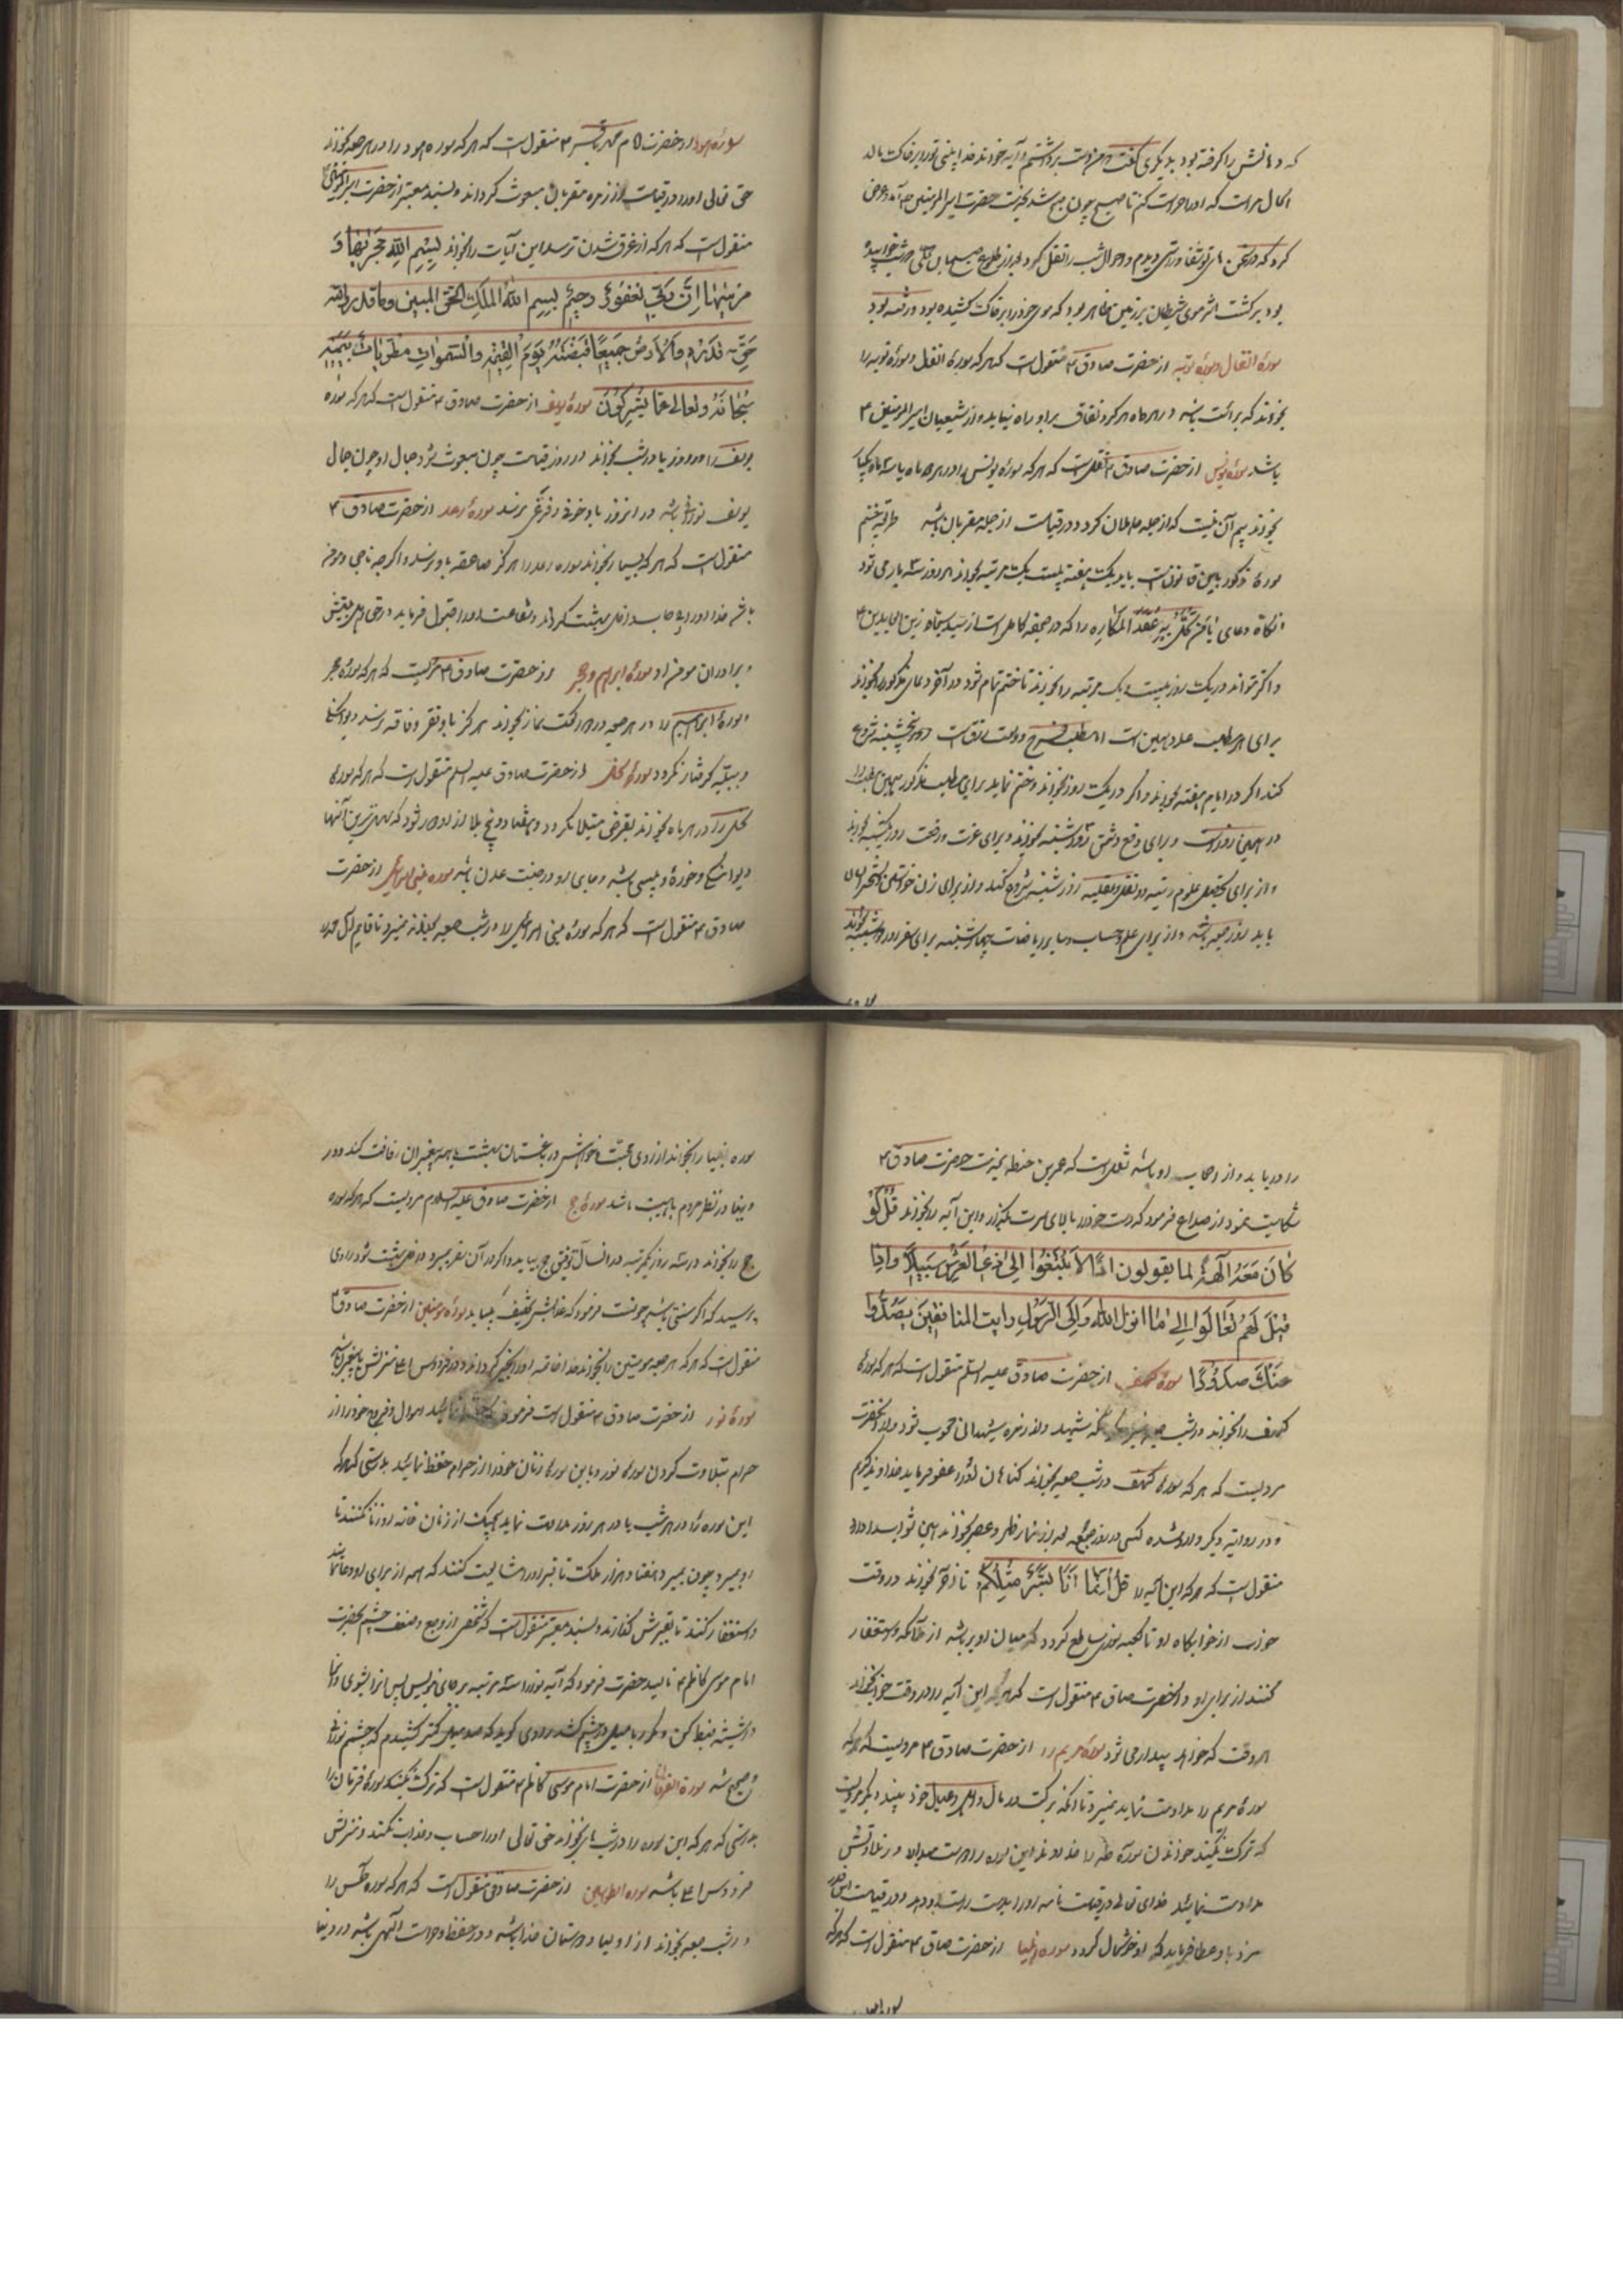 که دهانش را گرفته بود بدیگری گفت من دست برداشتم و آیه خواند خدا بینی تو را بر خاک بمالد
الحال مرا است که او را حراست کنم تا صبح چون صبح شد بخدمت حضرت امیرالمؤمنین ع آمد و عرض
کرد که در سخن تو شفا و راستی دیدم و احوال شب را نقل کرد بعد از طلوع صبح بهمان
بود برگشت اثر موی شیطان بر زمین ظاهر بود که موی خود را بر خاک کشیده بود و رفته بود
سورهٔ انفال و سورهٔ توبه از حضرت صادق ع منقول است که هر که سورهٔ انفال و سورهٔ توبه را
بخواند که برائت باشد در هر ماه هرگز نفاق بر او راه نیابد و از شیعیان امیرالمؤمنین ع
باشد سورهٔ یونس از حضرت صادق ع نقل است که هر که سورهٔ یونس را در هر دو ماه یا سه ماه یکبار
بخواند بیم آن نیست که از جمله جاهلان گردد و در قیامت از جمله مقربان باشد طریق ختم
سورهٔ مذکور باین قانون است باید یک هفته بیست یک مرتبه بخواند هر روز سه بار می‌شود
آنگاه دعای یا من تحل به عقد المکاره را که در صحیفه کامله است از سید سجاد زین العابدین ع
و اگر تواند در یک روز بیست و یک مرتبه را بخواند تا ختم تمام شود در آخر دعای مذکور را بخواند
برای هر مطلب عمل همین است اما مطلب و وسعت رزق است روز پنجشنبه شروع
کند اگر در ایام هفته بخواند و اگر در یک روز بخواند و ختم نماید برای مطلب مذکور همین
در همین روز است و برای دفع دشمن روز شنبه بخواند و برای عزت و رفعت روز یکشنبه بخواند
و از برای تحصیل علوم رتبیه و نقلیه روز شنبه شروع کند و از برای زن خواستن
باید روز جمعه باشد و از برای علم و حساب و سایر ریاضات چهارشنبه برای سفر روز دوشنبه بخواند
سورهٔ هود از حضرت امام محمد باقر ع منقول است که هر که سوره هود را در هر جمعه بخواند
حق تعالی او را در قیامت از زمره مقربان مبعوث گرداند و بسند معتبر از حضرت امیرالمؤمنین ع
منقول است که هر که از غرق شدن ترسد این آیات را بخواند بسم الله مجریها و
مرسیها ان ربی لغفور رحیم بسم الله الملک الحق المبین و ما قدروا الله
حق قدره والارض جمیعا قبضته یوم القیمة والسموات مطویات بیمینه
سبحانه و تعالی عما یشرکون سورهٔ یوسف از حضرت صادق ع منقول است که هر که سوره
یوسف را هر روز یا در شب بخواند در روز قیامت چون مبعوث شود جمال او چون جمال
یوسف نورانی باشد در آنروز باو خوف و فزعی نرسد سورهٔ رعد از حضرت صادق ع
منقول است که هر که بسیار بخواند سوره رعد را هرگز صاعقه باو نرسد و اگر چه ناجی و مؤمن
باشد خدا او را بی حساب داخل بهشت گرداند و شفاعت او را قبول فرماید در حق اهل بیتش
و برادران مؤمن او سورهٔ ابراهیم و حجر از حضرت صادق ع مرویست که هر که سورهٔ حجر
و سورهٔ ابراهیم را در هر جمعه در دو رکعت نماز بخواند هرگز باو فقر و فاقه نرسد و دیوانگی
و ببلیه گرفتار نگردد سورهٔ نحل از حضرت صادق علیه السلم منقول است که هر که سورهٔ
نحل را در هر ماه بخواند بقرض مبتلا نگردد و هفتاد و پنج بلا از او دور شود که سهل‌ترین آنها
دیوانگی و خوره و پیسی باشد و جای او در جنت عدن باشد سوره بنی اسرائیل از حضرت
صادق ع منقول است که هر که سورهٔ بنی اسرائیل را در شب جمعه بخواند نمیرد تا قایم آل محمد
را دریابد و از اصحاب او باشد نقل است که عمر بن حنظله بخدمت حضرت صادق ع
شکایت نمود از صداع فرمود که دست خود را بالای سرت بگذار و این آیه را بخواند قل لو
کان معه آلهة کما یقولون اذا لابتغوا الی ذی العرش سبیلا و اذا
قیل لهم تعالوا الی ما انزل الله والی الرسول رایت المنافقین یصدون
عنک صدودا سورهٔ کهف از حضرت صادق علیه السلم منقول است که هر که سورهٔ
کهف را بخواند در شب جمعه نمیرد مگر آنکه شهید و از زمره شهدا محسوب شود و از آنحضرت
مرویست که هر که سورهٔ کهف در شب جمعه بخواند گناهان او را عفو فرماید خداوند کریم
و در روایت دیگر وارد شده کسی در روز جمعه بعد از نماز ظهر و عصر بخواند همین ثواب دارد و
منقول است که هر که این آیه را قل انما انا بشر مثلکم تا آخر بخواند در وقت
خواب از خوابگاه او تا کعبه نوری ساطع گردد که میان او پر باشد از ملائکه و استغفار
کنند از برای او و از آنحضرت صادق ع منقول است که هر که این آیه را در وقت خواب بخواند
هر وقت که خواهد بیدار می‌شود سورهٔ مریم را از حضرت صادق ع مرویست که هر که
سورهٔ مریم را مداومت نماید نمیرد تا آنکه برکت در مال و اهل و عیال خود بیند و دیگر مرویست
که ترک نکنید خواندن سورهٔ طه را خداوند این سوره را دوست میدارد و در تلاوتش
مداومت نمائید خدای تعالی در قیامت نامه او را بدست راست او دهد و در قیامت این قدر
مزد باو عطا فرماید که او خوشحال گردد سوره انبیا از حضرت صادق ع منقول است که هر که
سوره انبیا را بخواند از روی محبت و خواهش در بستان بهشت با همه پیغمبران رفاقت کند و در
دنیا در نظر مردم با هیبت باشد سورهٔ حج از حضرت صادق علیه السلام مرویست که هر که سوره
حج را بخواند در سه روز یکمرتبه در آنسال توفیق حج بیابد و اگر در آن سفر بمیرد داخل بهشت شود راوی
پرسید که اگر سنی باشد چونست فرمود که عذابش تخفیف بیابد سورهٔ مؤمنین از حضرت صادق ع
منقول است که هر که هر جمعه مؤمنین را بخواند خدا خاتمه او را بخیر گرداند و در فردوس اعلی منزلش با پیغمبران باشد
سورهٔ نور از حضرت صادق ع منقول است فرمود که نمائید اموال و فروج خود را از
حرام بتلاوت کردن سورهٔ نور و باین سوره زنان خود را از حرام حفظ نمائید بدرستی که هر که
این سوره را در هر شب یا در هر روز مداومت نماید هیچیک از زنان خانه او زنا نکنند تا
او بمیرد و چون بمیرد هفتاد هزار ملک تا قبر او را مشایعت کنند که همه از برای او دعا نمایند
و استغفار کنند تا بقبرش گذارند و بسند معتبر منقول است که شخصی از وجع و ضعف چشم بحضرت
امام موسی کاظم ع نالید حضرت فرمود که آیه نور را سه مرتبه بر جامی نویس پس آنرا بشوی و آنرا
در شیشه ضبط کن و مکرر با میل در چشم کشد راوی گوید که صد میل کمتر کشیدم که چشم نورانی
و صحیح شد سورة الفرقان از حضرت امام موسی کاظم ع منقول است که ترک نکنید سورهٔ فرقان را
بدرستی که هر که این سوره را در شب بخواند حق تعالی او را حساب و عذاب نکند و منزلش
فردوس اعلی باشد سوره الطواسین از حضرت صادق منقول است که هر که سوره طس را
در شب جمعه بخواند از اولیا و دوستان خدا باشد و در حفظ و حراست الهی باشد و در دنیا